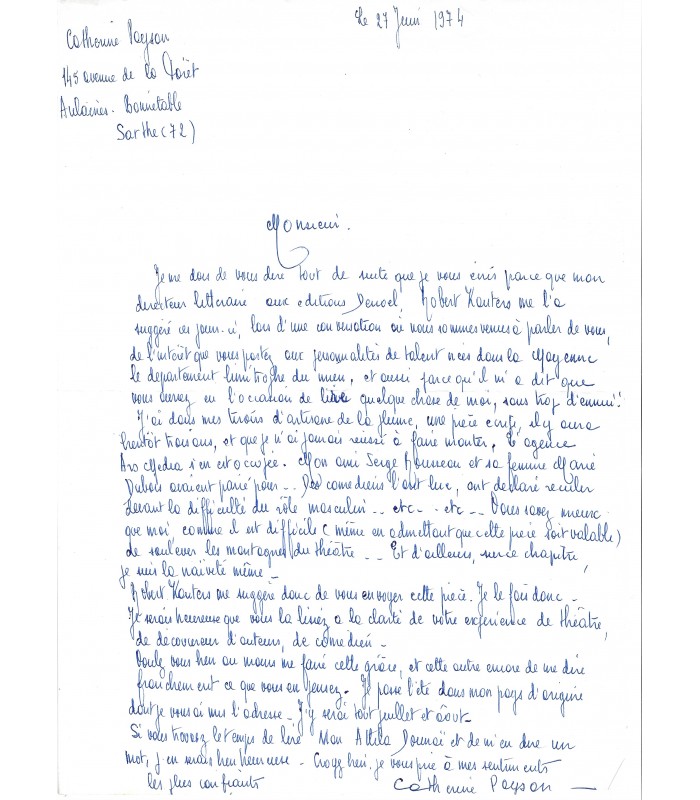 Le 27 Juin 1974
Catherine Paysan
145 avenue de la Forêt
Aulaines. Bonnétable
Sarthe (72)
Monsieur.
Je me dois de vous dire tout de suite que je vous écris parce que mon
directeur littéraire aux editions Denoel, Robert Kanters me l'a
suggéré ces jours-ci, lors d'une conversation où nous sommes venus à parler de vous,
de l'intérêt que vous portez aux personnalités de talent nées dans la Mayenne
le departement limitrophe du mien, et aussi parce qu'il m'a dit que
vous aviez eu l'occasion de lire quelque chose de moi, sans trop d'ennui!
J'ai dans mes tiroirs d'artisane de la plume, une pièce écrite, il y aura
bientôt trois ans, et que je n'ai jamais réussi à faire monter, L'agence
Ars Media s'en est occupée. Mon ami Serge Rousseau et sa femme Marie
Dubois avaient parié pour -- Des comediens l'ont lue, ont déclaré reculer
devant la difficulté du rôle masculin -- etc -- etc -- Vous savez mieux
que moi comme il est difficile (même en admettant que cette pièce soit valable)
de soulever les montagnes du théâtre -- Et d'ailleurs, sur ce chapitre,
je suis la naiveté même -
Robert Kanters me suggère donc de vous envoyer cette pièce. Je le fais donc -
Je serais heureuse que vous la lisiez à la clarté de votre expérience de théâtre,
de découvreur d'auteurs, de comédien -
Voulez vous bien au moins me faire cette grâce, et cette autre encore de me dire
franchement ce que vous en pensez. Je passe l'été dans mon pays d'origine
dont je vous ai mis l'adresse - J'y serai tout juillet et août -
Si vous trouvez le temps de lire Mon Attila Dounaï et de m'en dire un
mot, j'en serais bien heureuse - Croyez bien, je vous prie à mes sentiments
les plus confiants
Catherine Paysan